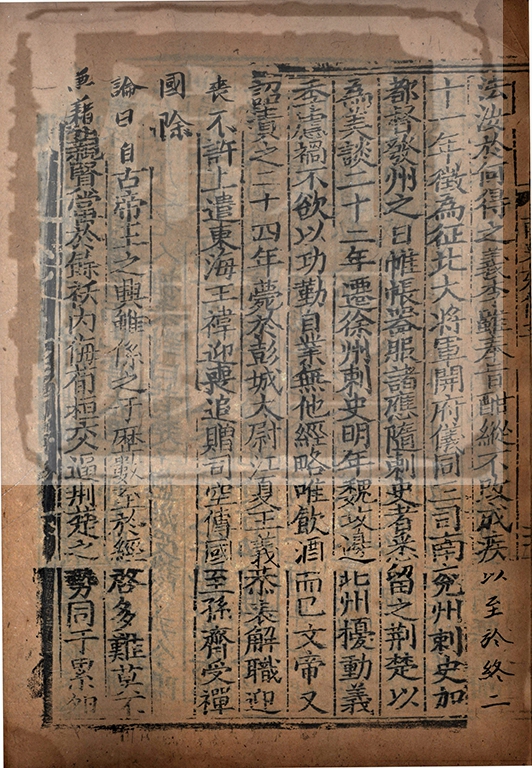 法於何得之義季雖奉旨酣縱不改成疾以至於終二
十一年徵為征北大將軍開府儀同三司南兗州刺史加
都督發州之日帷帳器服諸應隨刺史者悉留之荆楚以
為美談二十二年遷徐州刺史明年魏攻邊北州擾動義
季慮禍不欲以功勤自業無他經略唯飲酒而已文帝又
詔責之二十四年薨於彭城太尉江夏王義恭表解職迎
喪不許上遣東海王禕迎喪追贈司空傳國至孫齊受禪
國除
論曰自古帝王之興雖係之于歷數至於經啓多難莫不
兼藉親賢當於餘祅內侮荀桓交逼荆楚之勢同于累卵